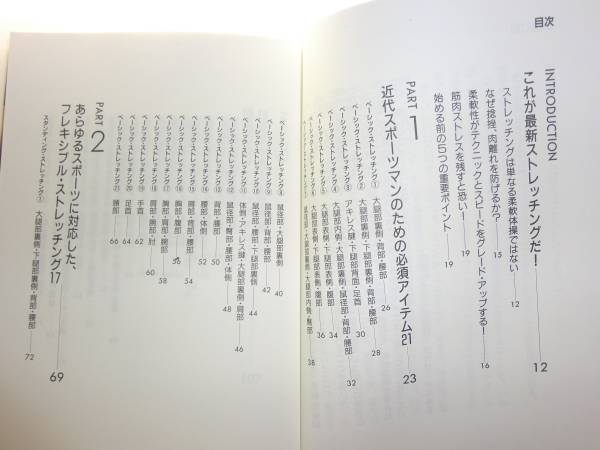 目次
INTRODUCTION
これが最新ストレッチングだ! 12
ストレッチングは単なる柔軟体操ではない 12
なぜ捻挫、肉離れを防げるか? 15
柔軟性がテクニックとスピードをグレード・アップする! 16
筋肉ストレスを残すと恐い! 19
始める前の5つの重要ポイント 19
PART 1
近代スポーツマンのための必須アイテム21 23
ベーシック・ストレッチング① 大腿部裏側・背部・腰部 26
ベーシック・ストレッチング② 大腿部裏側・下腿部裏側・背部・腰部 28
ベーシック・ストレッチング③ 大腿部裏側・下腿部裏側 30
ベーシック・ストレッチング④ アキレス腱・下腿部背面・足首 32
大腿部内側・鼠径部・背部・腰部 34
大腿部表側・腹部 36
大腿部表側・下腿部表側・腹部 38
ベーシック・ストレッチング⑧ 鼠径部・大腿部裏側 40
ベーシック・ストレッチング⑨ 鼠径部・背部・腰部 42
ベーシック・ストレッチング⑩ 鼠径部・腰部・下腿部裏側 44
ベーシック・ストレッチング⑪ 体側・アキレス腱・大腿部裏側・肩部 46
ベーシック・ストレッチング⑫ 鼠径部・臀部・腰部・体側 48
ベーシック・ストレッチング⑬ 背部・腰部 50
ベーシック・ストレッチング⑭ 腰部・体側 52
ベーシック・ストレッチング⑮ 肩部・背部 54
ベーシック・ストレッチング⑯ 胸部・腹部 56
ベーシック・ストレッチング⑰ 胸部・肩部・腕部 58
ベーシック・ストレッチング⑱ 肩部・腕部・肘 60
ベーシック・ストレッチング⑲ 手首 62
ベーシック・ストレッチング⑳ 足首 64
ベーシック・ストレッチング㉑ 腰部 66
PART 2
あらゆるスポーツに対応した、
フレキシブル・ストレッチング17 69
スタンディング・ストレッチング① 大腿部裏側・下腿部裏側・背部・腰部 72